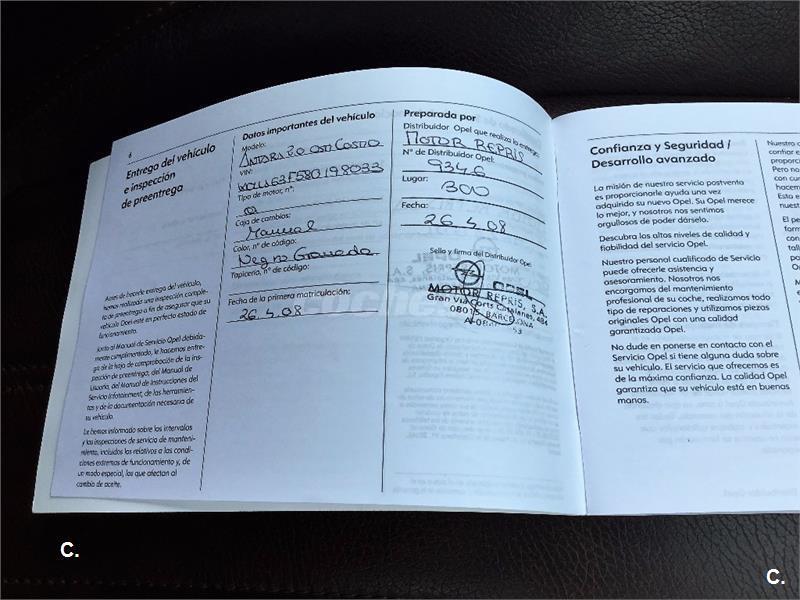 6
Entrega del vehículo
e inspección
de preentrega
Antes de hacerle entrega del vehículo,
hemos realizado una inspección comple-
ta de preentrega a fin de asegurar que su
vehículo Opel esté en perfecto estado de
funcionamiento.
Junto al Manual de Servicio Opel debida-
mente cumplimentado, le hacemos entre-
ga de la hoja de comprobación de la ins-
pección de preentrega, del Manual de
Usuario, del Manual de Instrucciones del
Servicio Infotainment, de las herramien-
tas y de la documentación necesaria de
su vehículo.
Le hemos informado sobre los intervalos
y las inspecciones de servicio de manteni-
miento, incluidos los relativos a las condi-
ciones extremas de funcionamiento y, de
un modo especial, los que afectan al
cambio de aceite.
Datos importantes del vehículo
Modelo:
ANTARA 2.0 CDTI COSMO
VIN:
Tipo de motor, n°:
Caja de cambios:
Manual
Color, n° de código:
Negro Granada
Tapicería, n° de código:
Fecha de la primera matriculación:
26.4.08
Preparada por
Distribuidor Opel que realiza la entrega:
MOTOR REPRIS
N° de Distribuidor Opel:
9346
Lugar:
300
Fecha:
26.4.08
Sello y firma del Distribuidor Opel
OPEL
MOTOR REPRIS, S.A.
Gran Via Corts Catalanes, 484
08015 BARCELONA
Confianza y Seguridad /
Desarrollo avanzado
La misión de nuestro servicio postventa
es proporcionarle ayuda una vez
adquirido su nuevo Opel. Su Opel merece
lo mejor, y nosotros nos sentimos
orgullosos de poder dárselo.
Descubra los altos niveles de calidad y
fiabilidad del servicio Opel.
Nuestro personal cualificado de Servicio
puede ofrecerle asistencia y
asesoramiento. Nosotros nos
encargamos del mantenimiento
profesional de su coche, realizamos todo
tipo de reparaciones y utilizamos piezas
originales Opel con una calidad
garantizada Opel.
No dude en ponerse en contacto con el
Servicio Opel si tiene alguna duda sobre
su vehículo. El servicio que ofrecemos es
de la máxima confianza. La calidad Opel
garantiza que su vehículo está en buenas
manos.
C.
C.